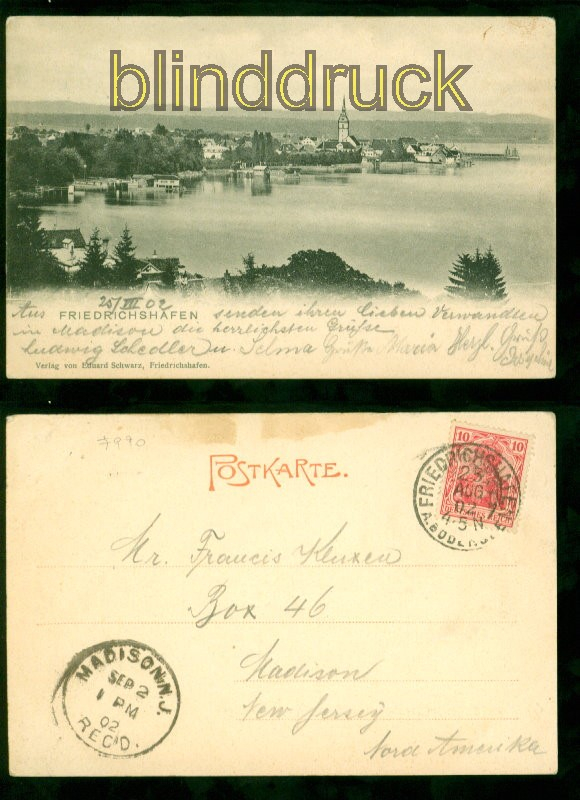 blinddruck
25/VIII 02
Aus FRIEDRICHSHAFEN senden ihren lieben Verwandten
in Madison die herrlichsten Grüße
Ludwig Schedler u. Selma Grüße Maria Herzl. Gruß
Verlag von Eduard Schwarz, Friedrichshafen.
7990
POSTKARTE.
10 10
FRIEDRICHSHAFEN
AUG
02
4-5N
Mr. Francis
Box 46
Madison
New Jersey
Nord Amerika
MADISON, N.J.
SEP 2
1 PM
02
REC'D.